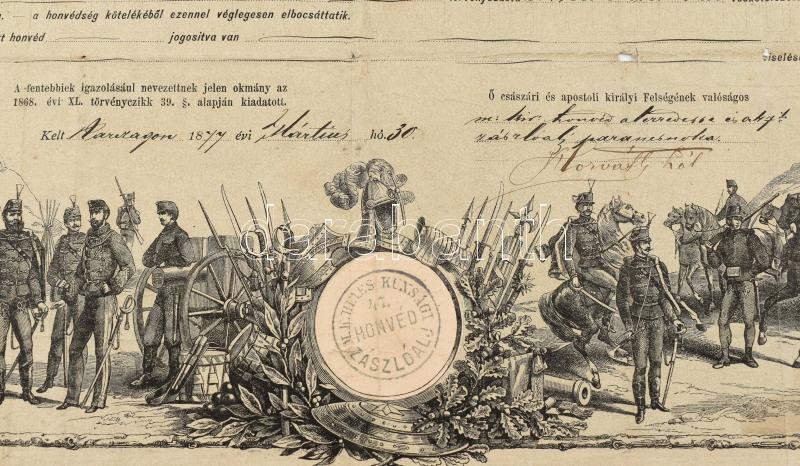 – a honvédség kötelékéből ezennel véglegesen elbocsáttatik.
honvéd jogositva van
viselésé
A fentebbiek igazolásául nevezettnek jelen okmány az
1868. évi XL. törvényczikk 39. §. alapján kiadatott.
Kelt Karczagon 1877 évi Mártius hó. 30.
Ő császári és apostoli királyi Felségének valóságos
m. kir. honvéd
zászlóalj parancsnoka.
Horváth Pál
darabanth
M. K. HEVES KUNSÁGI
HONVÉD
ZÁSZLÓALJ